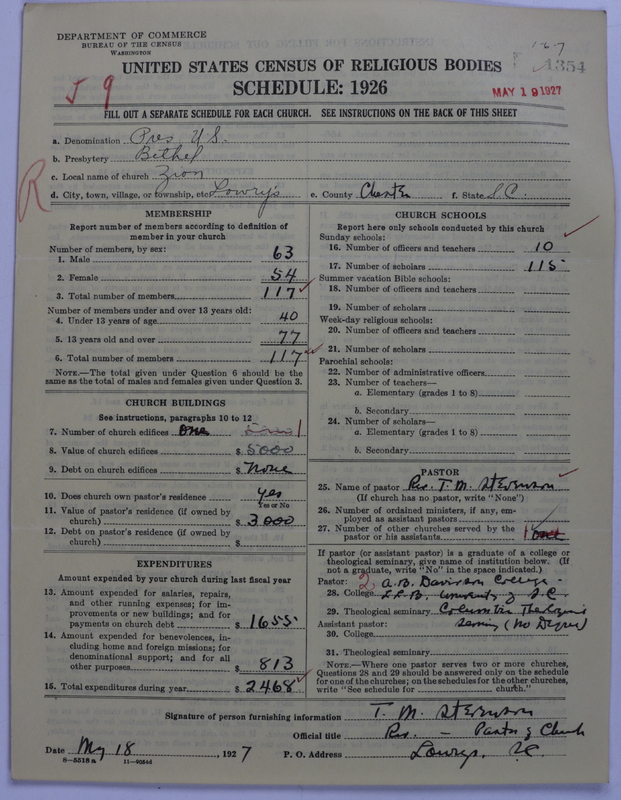 DEPARTMENT OF COMMERCE
BUREAU OF THE CENSUS
WASHINGTON
167
A354
UNITED STATES CENSUS OF RELIGIOUS BODIES
SCHEDULE: 1926
MAY 19 1927
J 9
FILL OUT A SEPARATE SCHEDULE FOR EACH CHURCH. SEE INSTRUCTIONS ON THE BACK OF THIS SHEET
a. Denomination Pres U.S.
b. Presbytery Bethel
c. Local name of church Zion
R
d. City, town, village, or township, etc Lowrys e. County Chester f. State S.C.
MEMBERSHIP
Report number of members according to definition of
member in your church
Number of members, by sex:
1. Male 63
2. Female 54
3. Total number of members 117
Number of members under and over 13 years old:
4. Under 13 years of age 40
5. 13 years old and over 77
6. Total number of members 117
NOTE.—The total given under Question 6 should be the
same as the total of males and females given under Question 3.
CHURCH BUILDINGS
See instructions, paragraphs 10 to 12
7. Number of church edifices One 1
8. Value of church edifices $ 5000
9. Debt on church edifices $ None
10. Does church own pastor's residence yes
Yes or No
11. Value of pastor's residence (if owned by
church) $ 3000
12. Debt on pastor's residence (if owned by
church) $
EXPENDITURES
Amount expended by your church during last fiscal year
13. Amount expended for salaries, repairs,
and other running expenses; for im-
provements or new buildings; and for
payments on church debt $ 1655
14. Amount expended for benevolences, in-
cluding home and foreign missions; for
denominational support; and for all
other purposes $ 813
15. Total expenditures during year $ 2468
CHURCH SCHOOLS
Report here only schools conducted by this church
Sunday schools:
16. Number of officers and teachers 10
17. Number of scholars 115
Summer vacation Bible schools:
18. Number of officers and teachers
19. Number of scholars
Week-day religious schools:
20. Number of officers and teachers
21. Number of scholars
Parochial schools:
22. Number of administrative officers
23. Number of teachers—
a. Elementary (grades 1 to 8)
b. Secondary
24. Number of scholars—
a. Elementary (grades 1 to 8)
b. Secondary
PASTOR
25. Name of pastor Rev. T. M. Stevenson
(If church has no pastor, write "None")
26. Number of ordained ministers, if any, em-
ployed as assistant pastors
27. Number of other churches served by the
pastor or his assistants 1 one
If pastor (or assistant pastor) is a graduate of a college or
theological seminary, give name of institution below. (If
not a graduate, write "No" in the space indicated.)
Pastor: 2 A.B. Davidson College -
28. College L.L.B. University of S.C.
29. Theological seminary Columbia Theological
Assistant pastor: Seminary (No Degree)
30. College
31. Theological seminary
NOTE.—Where one pastor serves two or more churches,
Questions 28 and 29 should be answered only on the schedule
for one of the churches; on the schedules for the other churches,
write "See schedule for church."
Signature of person furnishing information T. M. Stevenson
Official title Rev. - Pastor of Church
Date May 18, 1927 P. O. Address Lowrys, S.C.
8-5518a 11-9054d